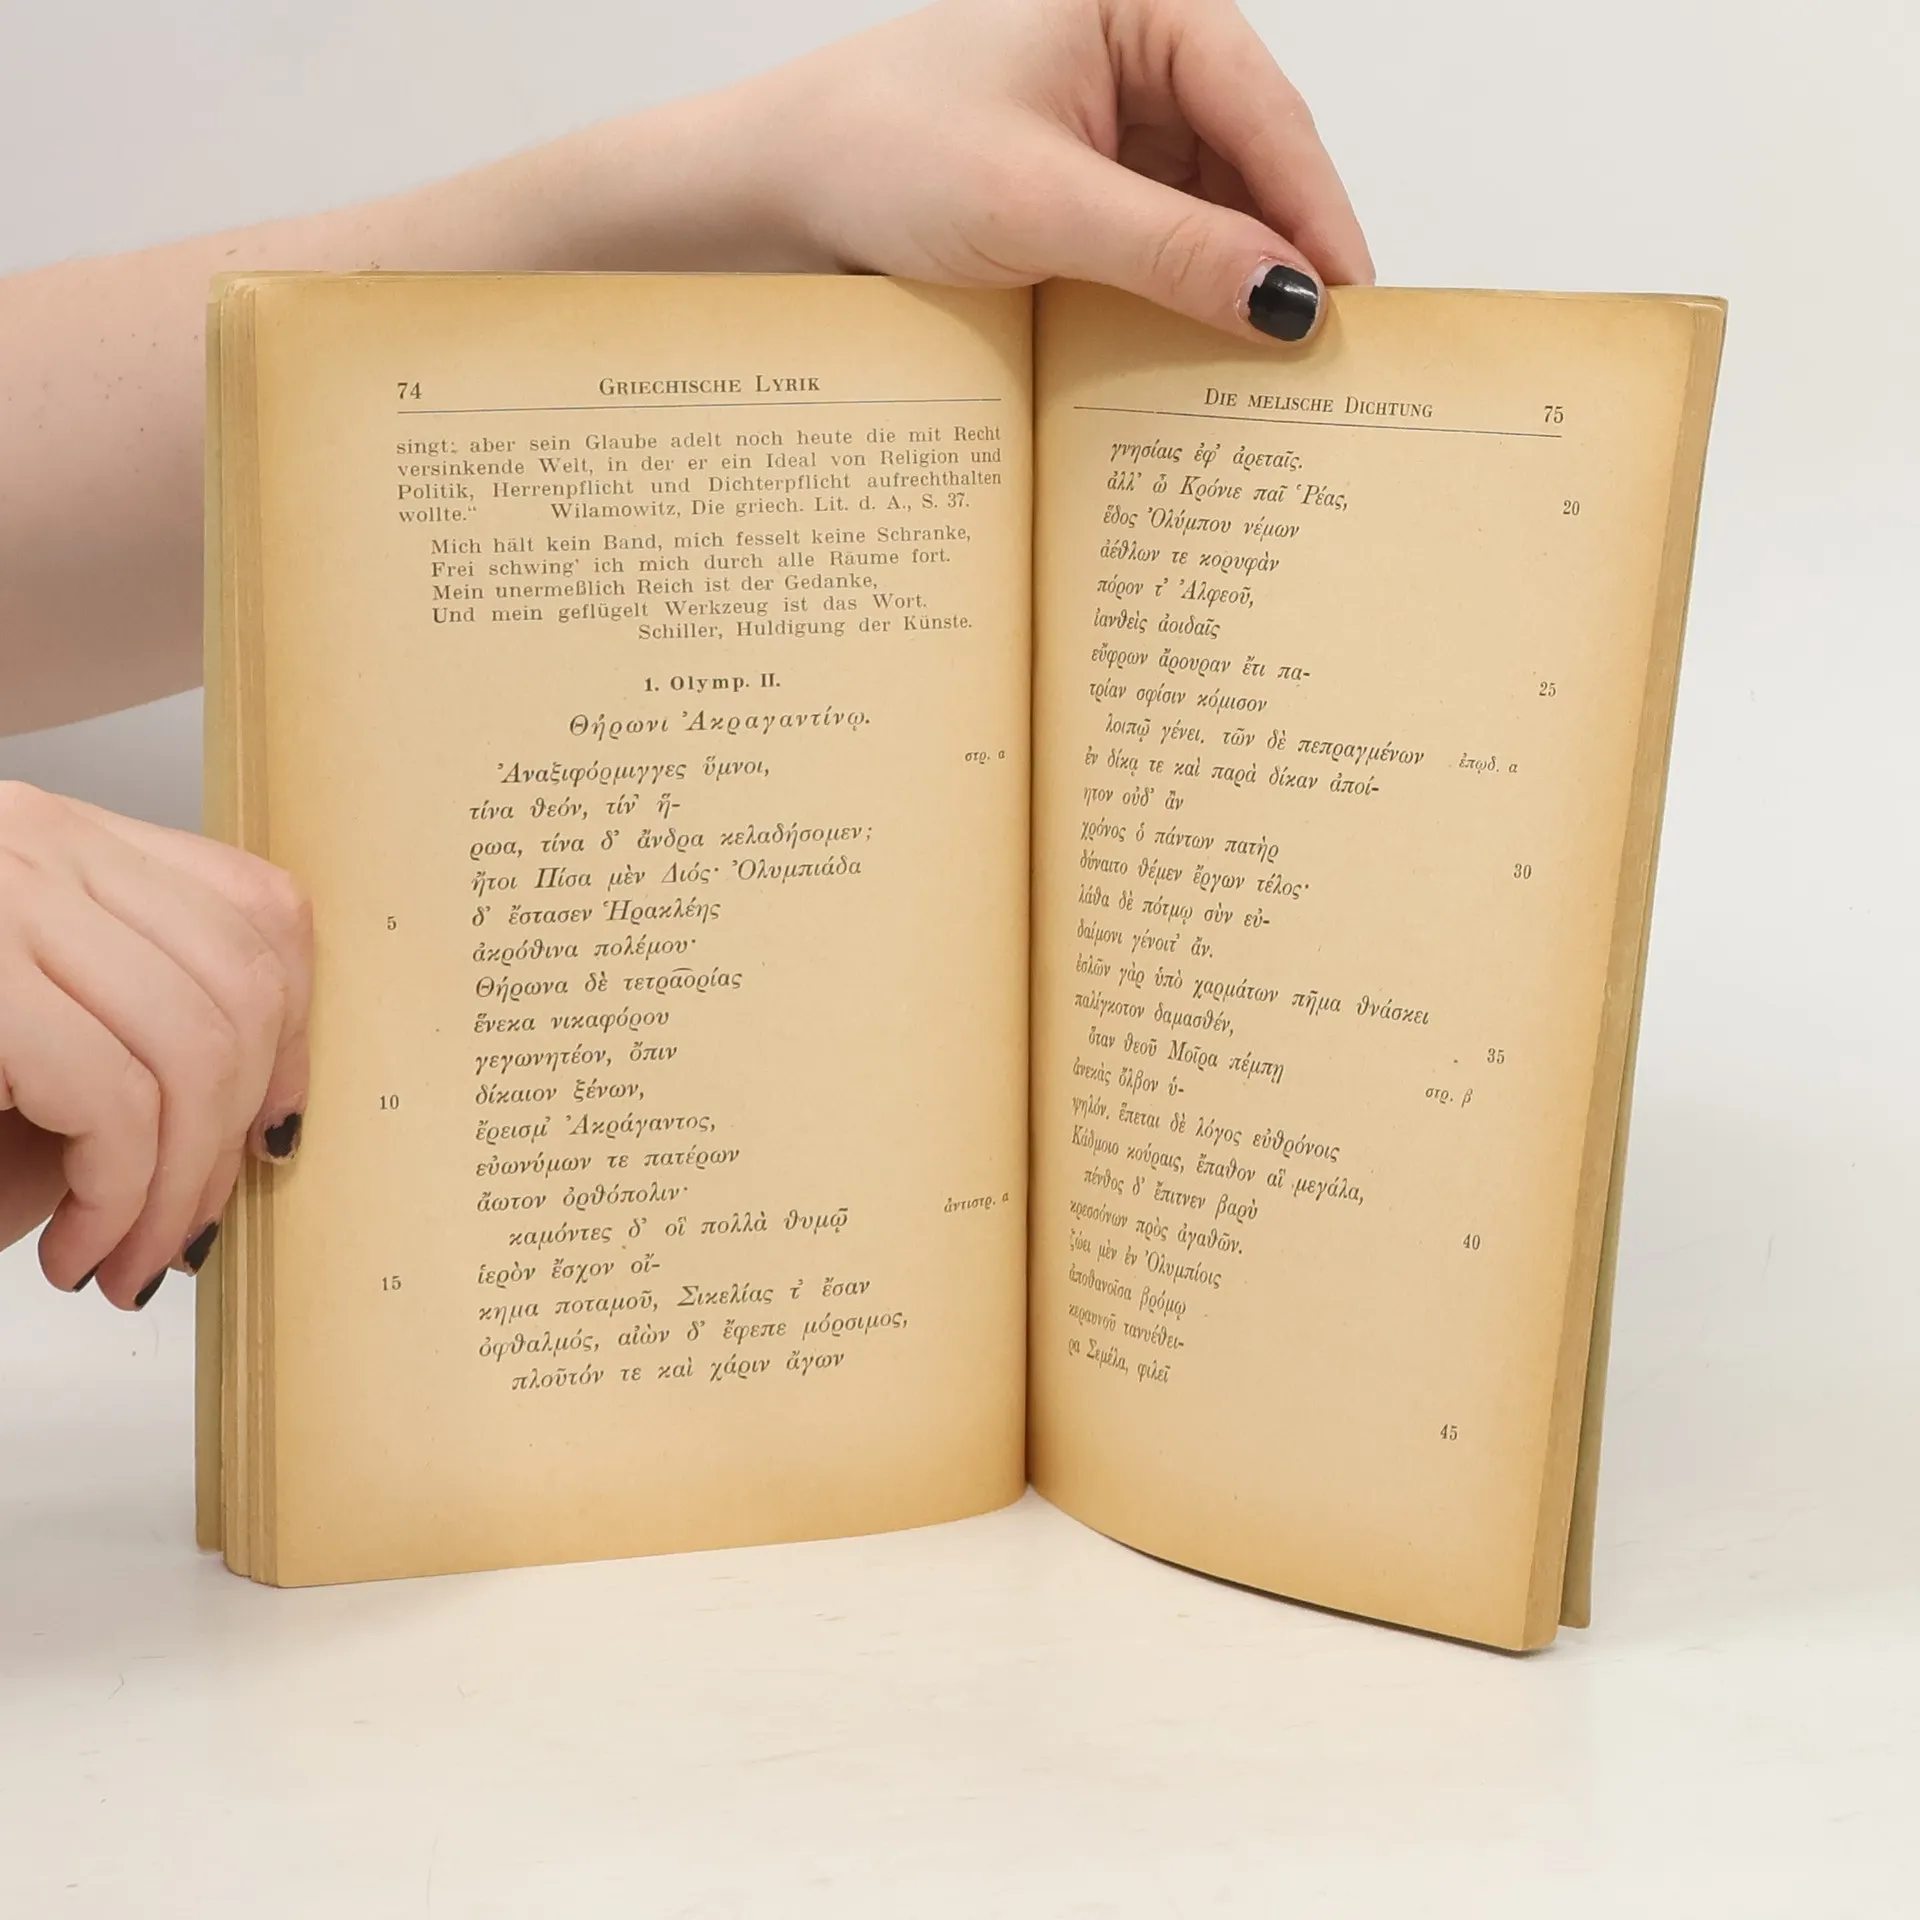 74 GRIECHISCHE LYRIK
singt; aber sein Glaube adelt noch heute die mit Recht
versinkende Welt, in der er ein Ideal von Religion und
Politik, Herrenpflicht und Dichterpflicht aufrechthalten
wollte.“ Wilamowitz, Die griech. Lit. d. A., S. 37.
Mich hält kein Band, mich fesselt keine Schranke,
Frei schwing' ich mich durch alle Räume fort.
Mein unermeßlich Reich ist der Gedanke,
Und mein geflügelt Werkzeug ist das Wort.
Schiller, Huldigung der Künste.
1. Olymp. II.
Θήρωνι Ἀκραγαντίνῳ.
Ἀναξιφόρμιγγες ὕμνοι, στρ. α
τίνα θεόν, τίν' ἥ-
ρωα, τίνα δ' ἄνδρα κελαδήσομεν;
ἤτοι Πίσα μὲν Διός· Ὀλυμπιάδα
5 δ' ἔστασεν Ἡρακλέης
ἀκρόθινα πολέμου·
Θήρωνα δὲ τετραορίας
ἕνεκα νικαφόρου
γεγωνητέον, ὄπιν
10 δίκαιον ξένων,
ἔρεισμ' Ἀκράγαντος,
εὐωνύμων τε πατέρων
ἄωτον ὀρθόπολιν·
καμόντες δ' οἳ πολλὰ θυμῷ ἀντιστρ. α
15 ἱερὸν ἔσχον οἴ-
κημα ποταμοῦ, Σικελίας τ' ἔσαν
ὀφθαλμός, αἰὼν δ' ἔφεπε μόρσιμος,
πλοῦτόν τε καὶ χάριν ἄγων
DIE MELISCHE DICHTUNG 75
γνησίαις ἐφ' ἀρεταῖς.
ἀλλ' ὦ Κρόνιε παῖ Ῥέας, 20
ἕδος Ὀλύμπου νέμων
ἀέθλων τε κορυφὰν
πόρον τ' Ἀλφεοῦ,
ἰανθεὶς ἀοιδαῖς
εὔφρων ἄρουραν ἔτι πα- 25
τρίαν σφίσιν κόμισον
λοιπῷ γένει. τῶν δὲ πεπραγμένων ἐπῳδ. α
ἐν δίκᾳ τε καὶ παρὰ δίκαν ἀποί-
ητον οὐδ' ἂν
χρόνος ὁ πάντων πατὴρ 30
δύναιτο θέμεν ἔργων τέλος·
λάθα δὲ πότμῳ σὺν εὐ-
δαίμονι γένοιτ' ἄν.
ἐσλῶν γὰρ ὑπὸ χαρμάτων πῆμα θνάσκει
παλίγκοτον δαμασθέν, 35
ὅταν θεοῦ Μοῖρα πέμπῃ στρ. β
ἀνεκὰς ὄλβον ὑ-
ψηλόν. ἕπεται δὲ λόγος εὐθρόνοις
Κάδμοιο κούραις, ἔπαθον αἳ μεγάλα,
πένθος δ' ἔπιτνεν βαρὺ 40
κρεσσόνων πρὸς ἀγαθῶν.
ζώει μὲν ἐν Ὀλυμπίοις
ἀποθανοῖσα βρόμῳ
κεραυνοῦ τανυέθει-
ρα Σεμέλα, φιλεῖ 45